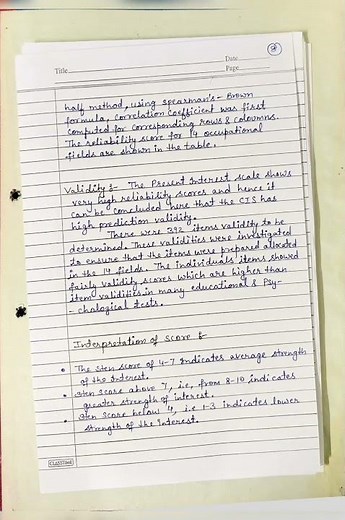 Title
Date
Page
half method, using Spearman's - Brown
formula, correlation coefficient was first
computed for corresponding rows & coloumns.
The reliability score for 14 occupational
fields are shown in the table.
Validity :- The Present Interest scale shows
very high reliability scores and hence it
can be concluded here that the CIS has
high prediction validity.
There were 392 items validity to be
determined. These validities were investigated
to ensure that the items were prepared allocated
in the 14 fields. The individuals items showed
fairly validity scores which are higher than
item validities in many educational & Psy-
-chological tests.
Interpretation of Score :-
• The sten score of 4-7 indicates average strength
of the interest.
• Sten score above 7, i.e, from 8-10 indicates
greater strength of interest.
• Sten score below 4, i.e 1-3 indicates lower
strength of the interest.
CLASSTIME